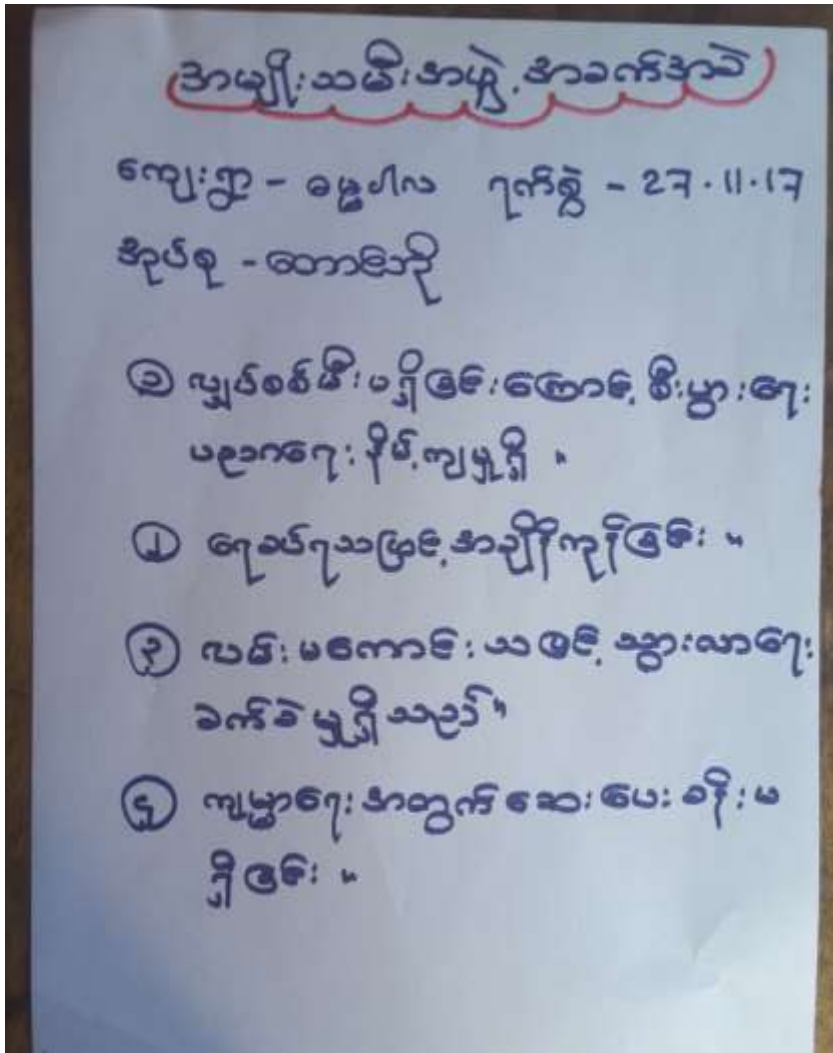 အမျိုးသမီးအဖွဲ့.အခက်အခဲ
ကျေးရွာ - ဓမ္မပါလ ရက်စွဲ - 27.11.17
အုပ်စု - တောင်ဘို
၁ လျှပ်စစ်မီးမရှိခြင်းကြောင့် စီးပွားရေး
ပညာရေး နိမ့်ကျမှုရှိ ။
၂ ရေခပ်ရသဖြင့် အချိန်ကုန်ခြင်း ။
၃ လမ်းမကောင်းသဖြင့် သွားလာရေး
ခက်ခဲမှုရှိသည်။
၄ ကျမ္မာရေးအတွက် ဆေးပေးခန်းမ
ရှိခြင်း ။